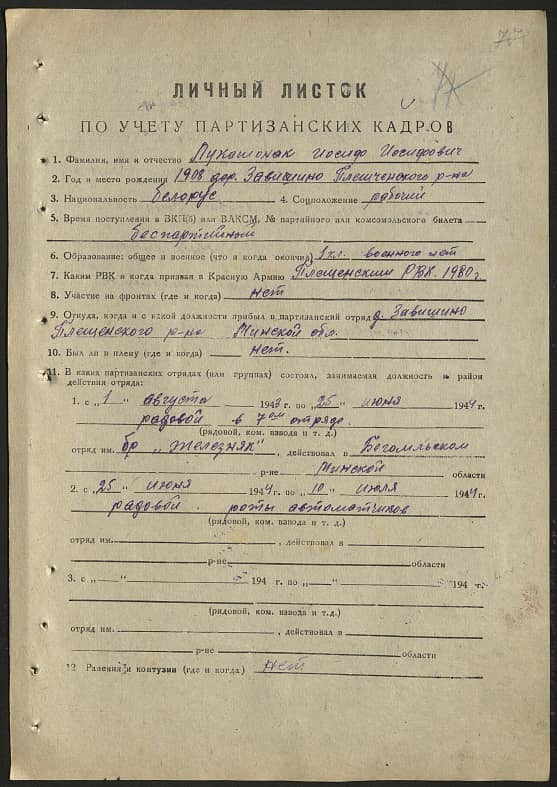 ЛИЧНЫЙ ЛИСТОК
ПО УЧЕТУ ПАРТИЗАНСКИХ КАДРОВ
1. Фамилия, имя и отчество Лукашонак Иосифо Иосифович
2. Год и место рождения 1908 дер. Завишино Плещенского р-на
3. Национальность белорус 4. Соцположение рабочий
5. Время поступления в ВКП(б) или ВЛКСМ, № партийного или комсомольского билета
беспартийный
6. Образование: общее и военное (что и когда окончил) 1 кл. военного нет
7. Каким РВК и когда призван в Красную Армию Плещенским РВК. 1930 г.
8. Участие на фронтах (где и когда) нет
9. Откуда, когда и с какой должности прибыл в партизанский отряд д. Завишино
Плещенского р-на Минской обл.
10. Был ли в плену (где и когда) нет.
11. В каких партизанских отрядах (или группах) состоял, занимаемая должность и район
действия отряда:
1. с „1" августа 1943 г. по „25" июня 1944 г.
радовой в 7ом отряде.
(рядовой, ком. взвода и т. д.)
отряд им. бр „Железняк", действовал в Бегомльском
р-не Минской области
2. с „25" июня 1944 г. по „10" июля 1944 г.
радовой. роты автоматчиков
(рядовой, ком. взвода и т. д.)
отряд им. , действовал в
р-не области
3. с „ " 194 г. по „ " 194 г.
(рядовой, ком. взвода и т.д.)
отряд им. , действовал в
р-не области
12. Ранения и контузии (где и когда) нет